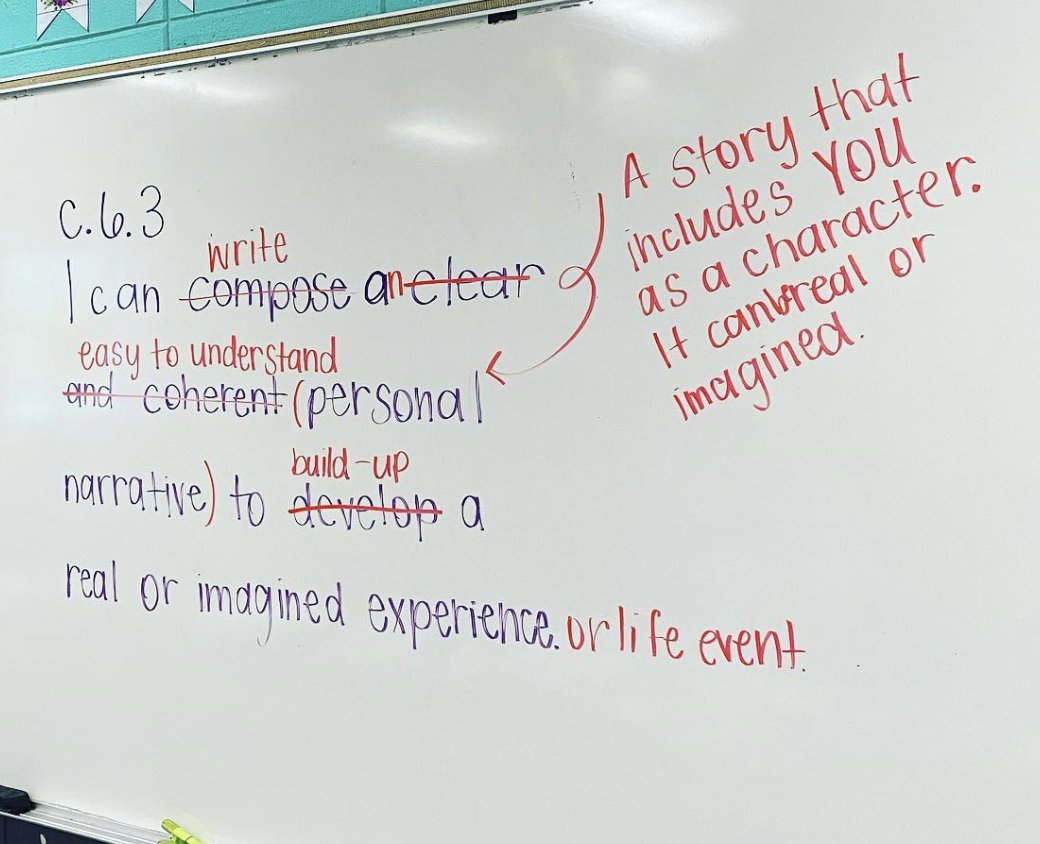 C.6.3
write
I can compose an clear
easy to understand
and coherent (personal
build-up
narrative) to develop a
real or imagined experience. or life event.
A story that
includes YOU
as a character.
It can be real or
imagined.